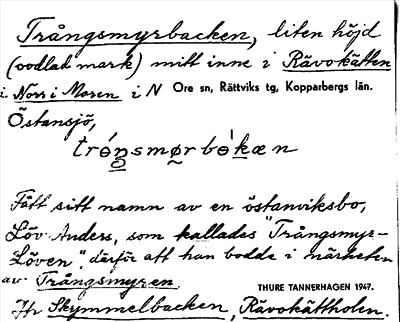 Trångsmyrbacken, liten höjd
(oodlad mark) mitt inne i Rävokätten
i. Norr i Moren i N Ore sn, Rättviks tg, Kopparbergs län.
Östansjö,
Fått sitt namn av en östanviksbo,
Löv Anders, som kallades "Trångsmyr-
Löven", därför att han bodde i närheten
av Trångsmyren.
THURE TANNERHAGEN 1947.
Jfr Skymmelbacken, Rävokättholen.